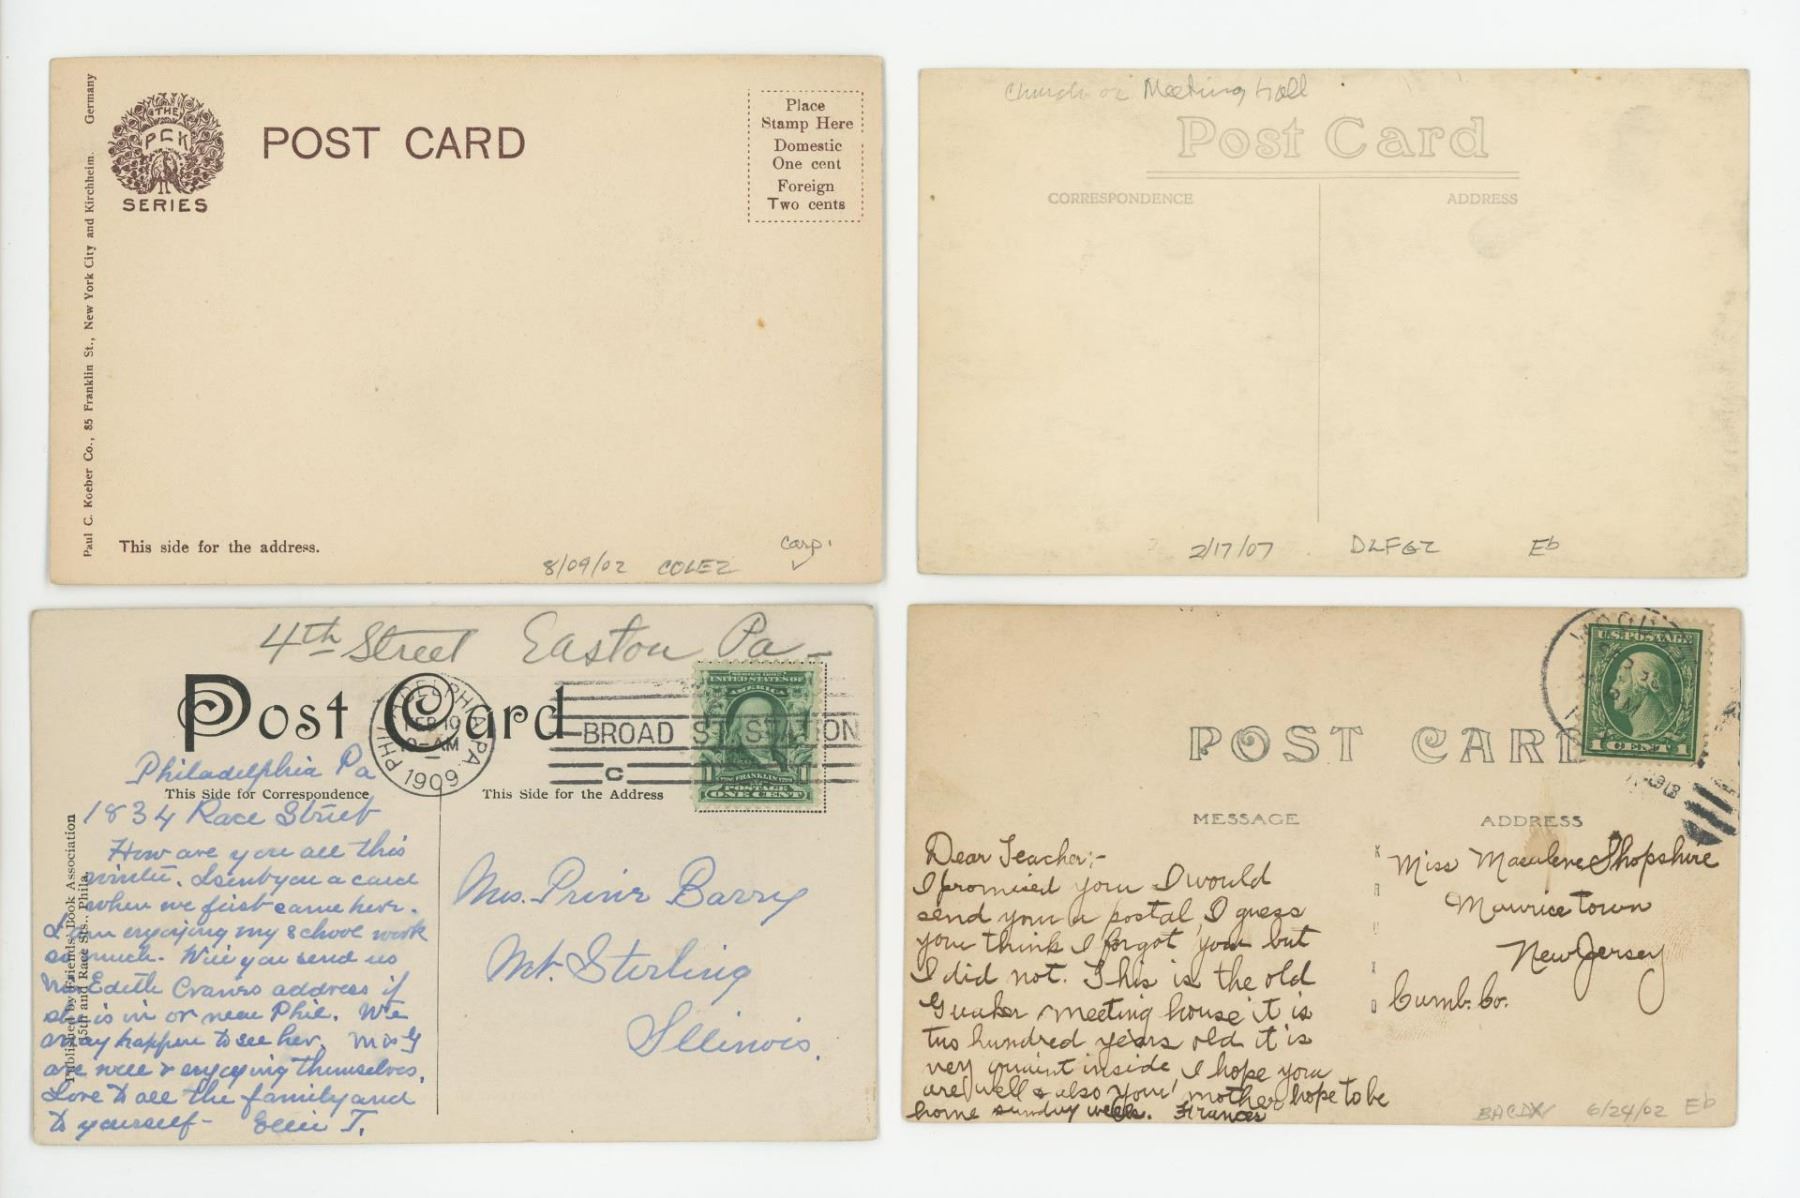 Paul C. Koeber Co., 85 Franklin St., New York City and Kirchheim. Germany
THE
PCK
SERIES
POST CARD
Place
Stamp Here
Domestic
One cent
Foreign
Two cents
This side for the address.
8/09/02 COLEZ Carp.
Church or Meeting Hall
Post Card
CORRESPONDENCE
ADDRESS
2/17/07 DLFGZ Eb
4th Street Easton Pa -
Post Card
PHILADELPHIA, PA.
FEB 19
10-AM
1909
BROAD ST. STATION
C
SERIES 1902
UNITED STATES OF
AMERICA
FRANKLIN
POSTAGE
1 ONE CENT 1
This Side for Correspondence
This Side for the Address
Published by Friends' Book Association
15th and Race Sts., Phila.
Philadelphia Pa
1834 Race Street
How are you all this
winter. I sent you a card
when we first came here.
I am enjoying my school work
so much. Will you send us
Edith address if
she is in or near Phil. We
may happen to see her.
are well & enjoying themselves.
Love to all the family and
to yourself -
Mrs. Barry
Mt. Sterling
Illinois.
POST CARD
U.S. POSTAGE
1 CENT 1
MESSAGE
ADDRESS
Dear Teacher:-
I promised you I would
send you a postal, I guess
you think I forgot you but
I did not. This is the old
Quaker meeting house it is
two hundred years old it is
very quaint inside I hope you
are well & also your mother hope to be
home sunday week. Frances
Miss Shopshire
Maurice town
New Jersey
Cumb. Co.
6/24/02 Eb